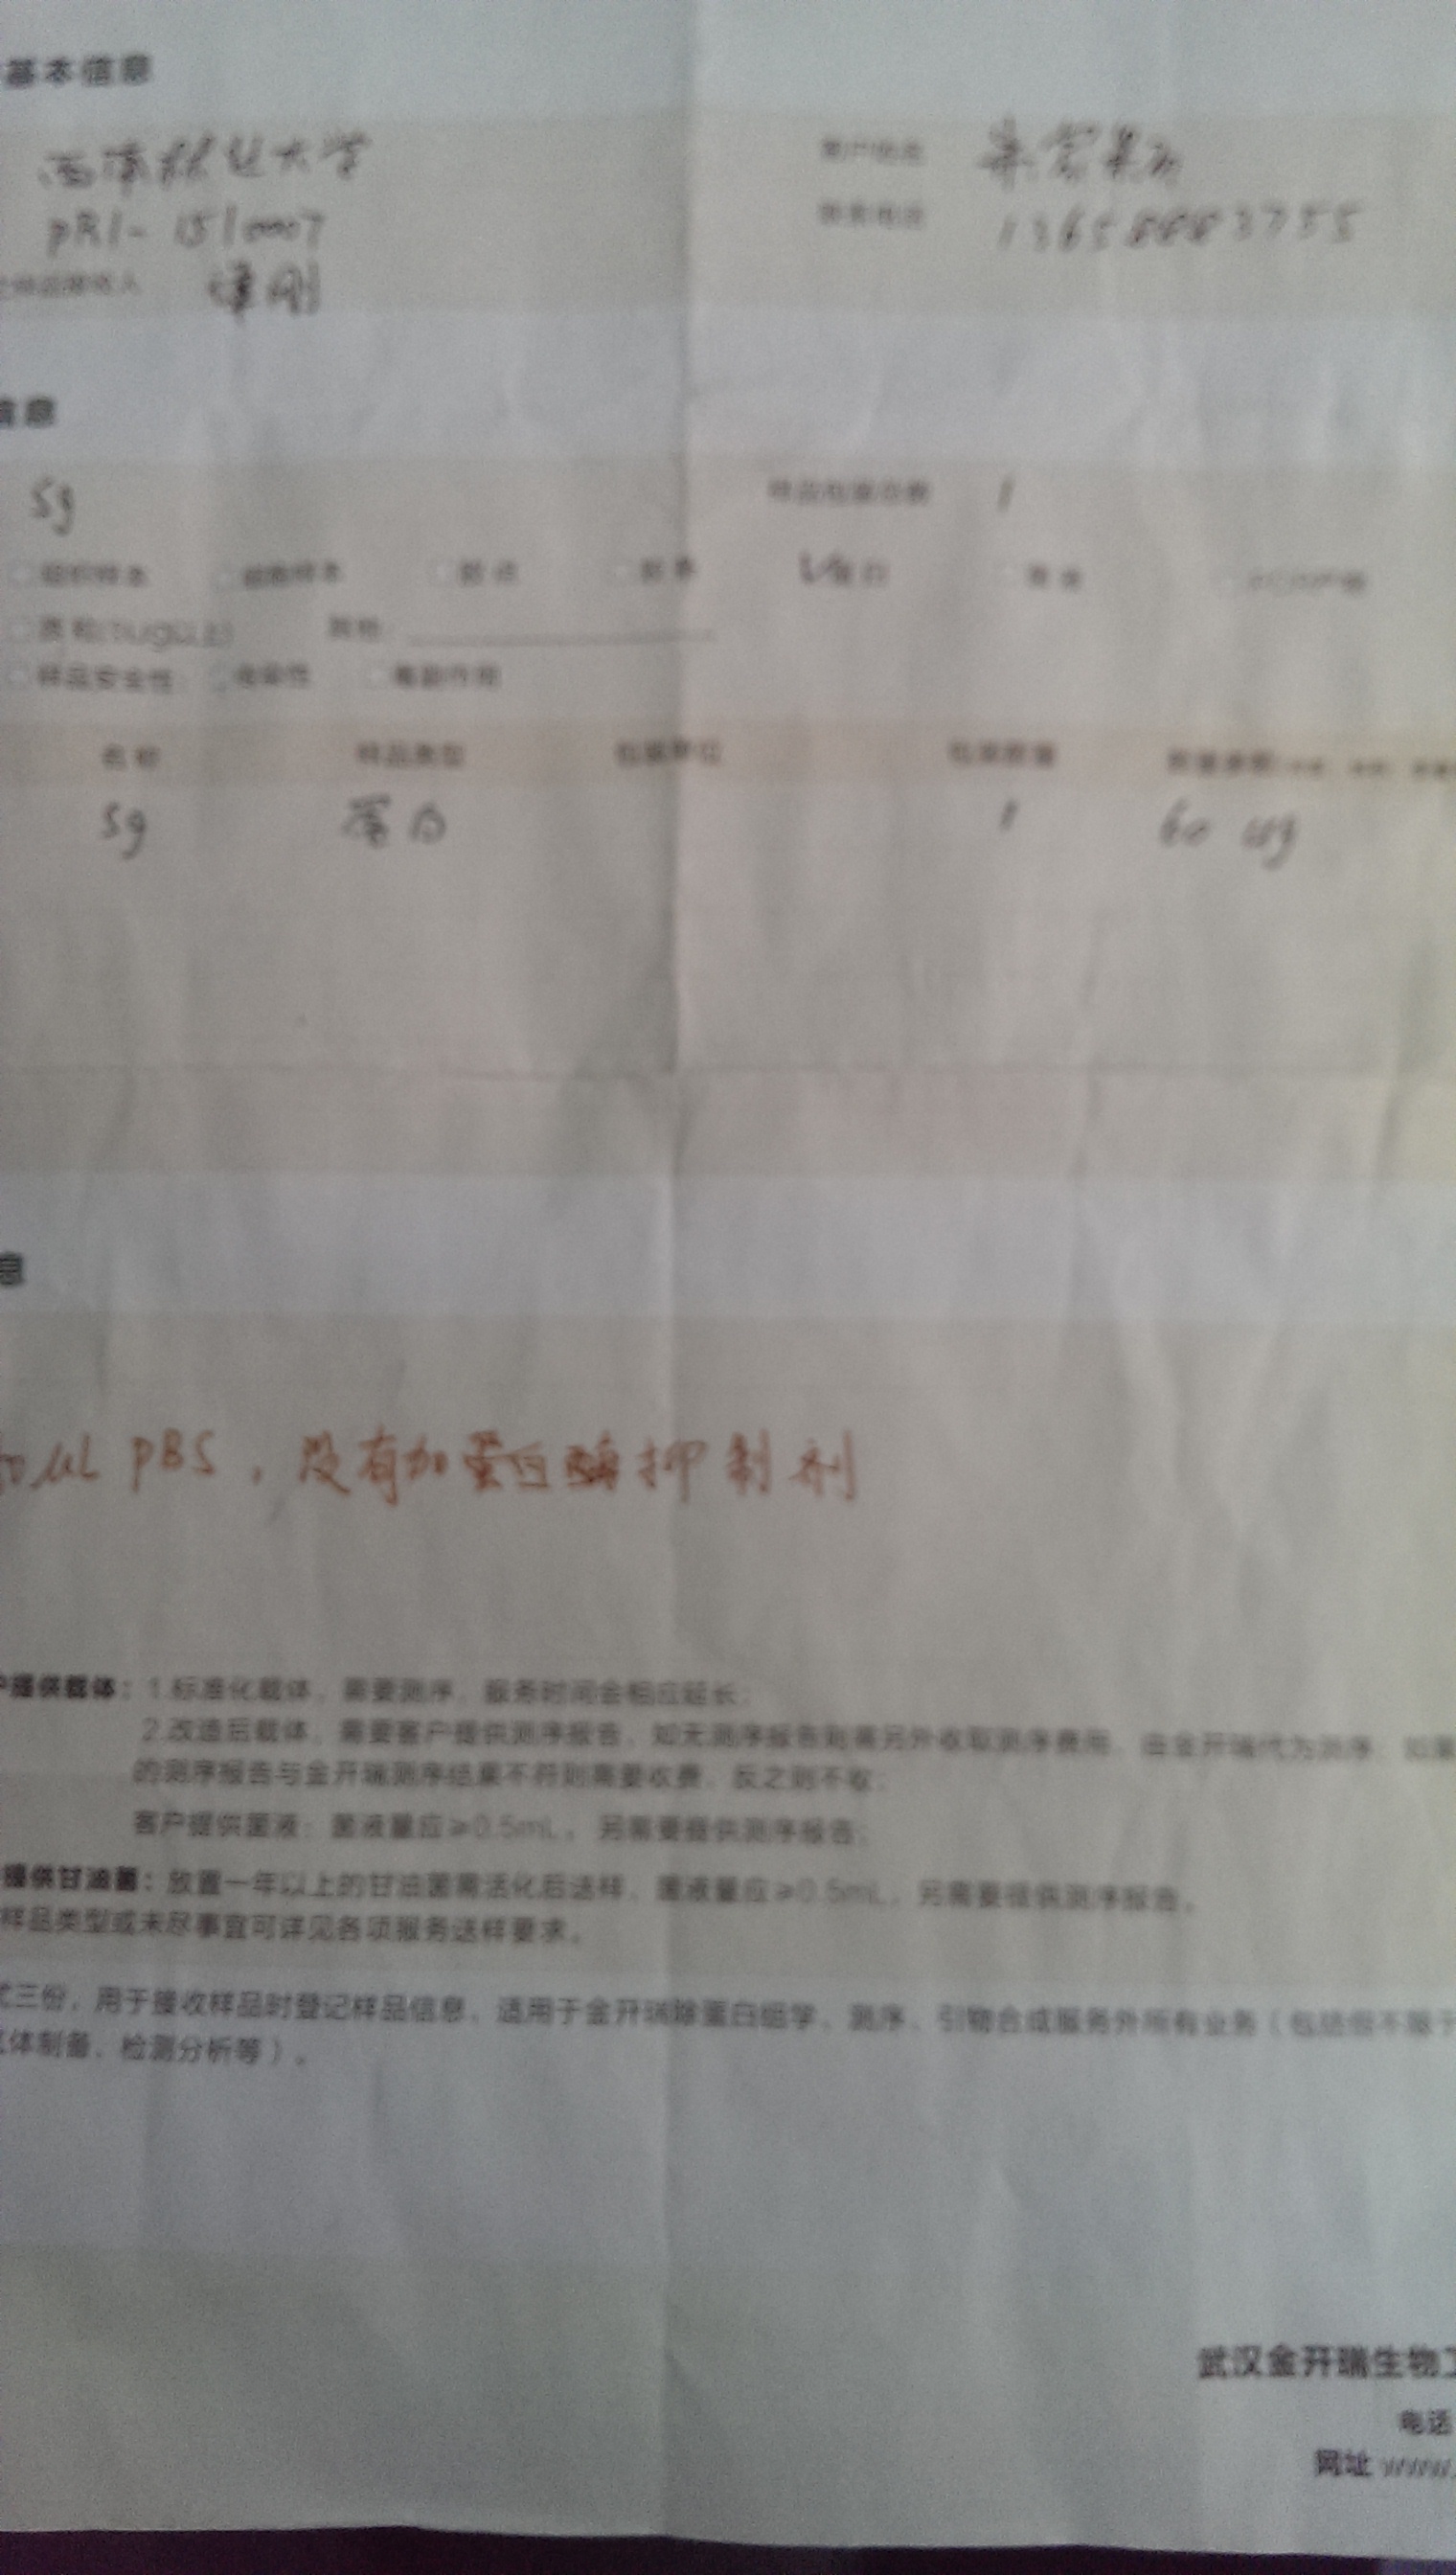 基本信息
西南林业大学 客户姓名
PRI-1510007 联系电话 13658883755
样品接收人 谭刚
信息
Sg 样品包装总数 1
组织样本 细胞样本 胶点 胶条 蛋白 多肽 PCR产物
质粒(1ug以上) 其他:
样品安全性: 传染性 毒副作用
名称 样品类型 包装单位 包装数量 质量参数
Sg 蛋白 1 60 ug
息
μL PBS，没有加蛋白酶抑制剂
提供载体：1.标准化载体，需要测序，服务时间会相应延长；
2.改造后载体，需要客户提供测序报告，如无测序报告则需另外收取测序费用，由金开瑞代为测序，如果
的测序报告与金开瑞测序结果不符则需要收费，反之则不收；
客户提供菌液：菌液量应≥0.5mL，另需要提供测序报告；
提供甘油菌：放置一年以上的甘油菌需活化后送样，菌液量应≥0.5mL，另需要提供测序报告。
样品类型或未尽事宜可详见各项服务送样要求。
式三份，用于接收样品时登记样品信息，适用于金开瑞除蛋白组学、测序、引物合成服务外所有业务（包括但不限于
体制备、检测分析等）。
武汉金开瑞生物工
电话
网址 www.